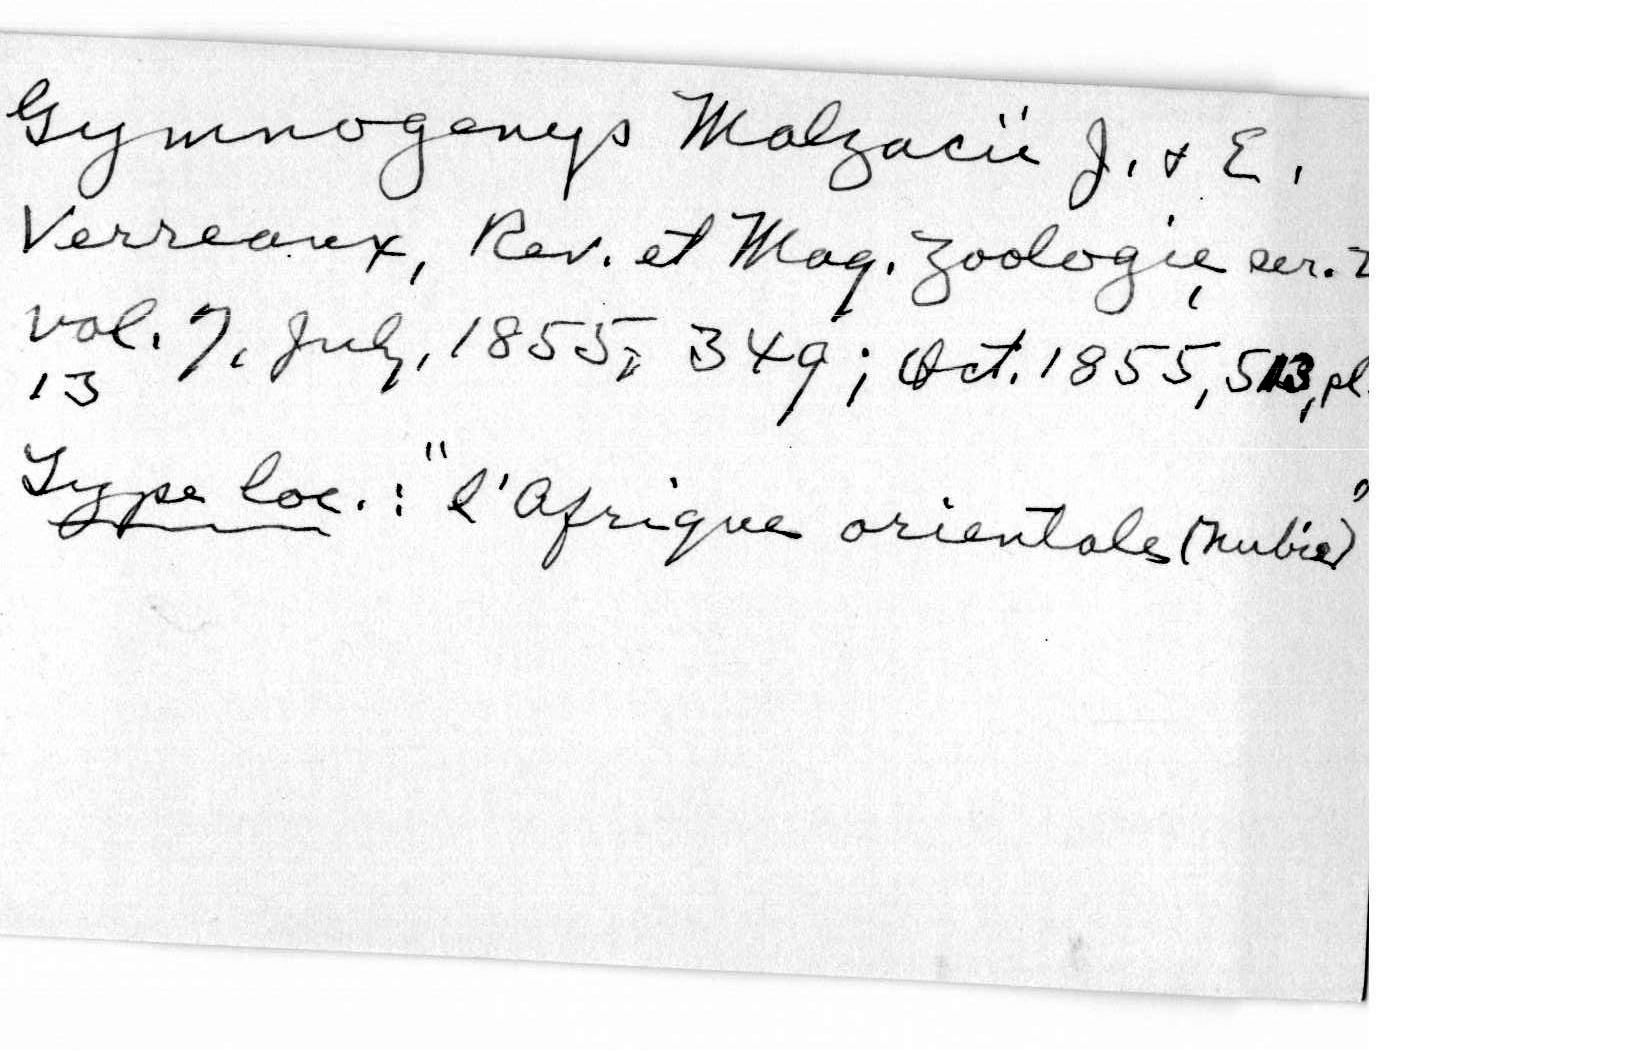 Gymnogenys Malzacii J. & E.
Verreaux, Rev. et Mag. Zoologie, ser. 2
vol. 7, July, 1855, 349; Oct. 1855, 513, pl.
13
Type loc.: "l'Afrique orientale (Nubie)"